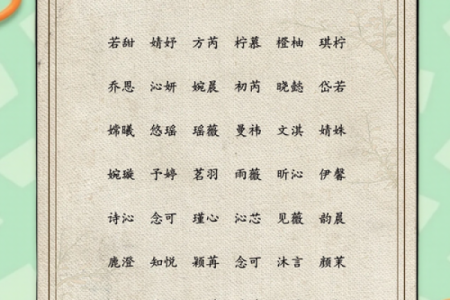 若甜 婧妤 方芮 柠慕 橙柚 琪柠
乔思 沁妍 婉晨 初芮 晓懿 岱若
嫦曦 悠瑶 瑶薇 曼祎 文淇 婧姝
婉璇 予婷 茗羽 雨薇 昕沁 伊馨
诗沁 念可 瑾心 沁芯 见薇 韵晨
鹿澄 知悦 颖苒 念可 沐言 颜茉